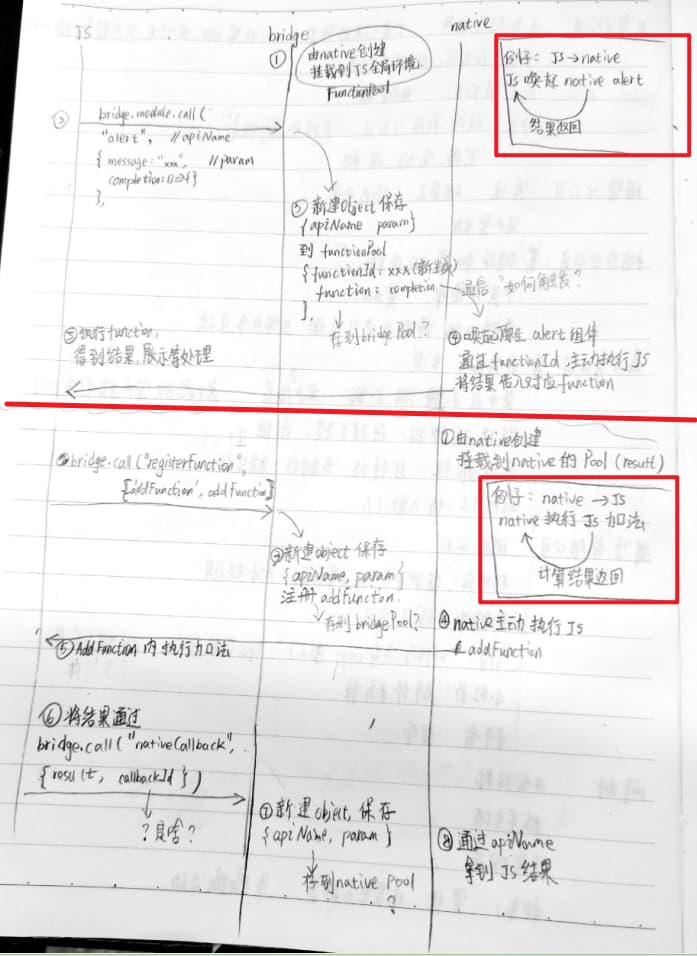 JS
bridge
native
①
由native创建
挂载到JS全局环境.
FunctionPool
例子: JS→native
JS 唤起 native alert
结果返回
②
bridge.module.call(
"alert", //apiName
{ message:"xxx", //param
completion:()=>{}
},
③新建Object保存
{apiName param}
到 functionPool
{functionId: xxx(新生成)
function: completion
}.
通信"如何触发?
存到bridgePool?
④唤起原生alert组件
通过functionId,主动执行JS
将结果传入对应function
⑤执行function,
得到结果,展示等处理
①由native创建
挂载到native的Pool(result)
②bridge.call("registerFunction",
{'addFunction', addFunction}
例子: native→JS
native执行JS加法
计算结果返回
③新建object保存
{apiName, param}
注册 addFunction.
存到bridgePool?
④native主动执行JS
addFunction
⑤AddFunction内执行加法
⑥将结果通过
bridge.call("nativeCallback",
{result, callbackId})
?是啥?
⑦新建object,保存
{apiName, param}
存到native Pool
?
⑧通过apiName
拿到JS结果